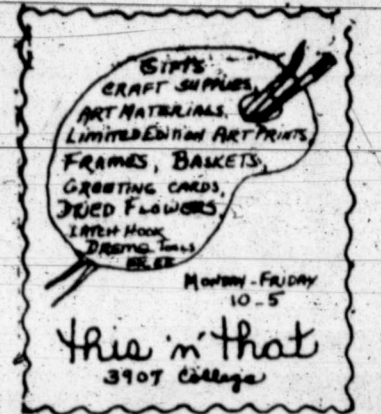 GIFTS
CRAFT SUPPLIES,
ART MATERIALS,
LIMITED EDITION ART PRINTS,
FRAMES, BASKETS,
GREETING CARDS,
DRIED FLOWERS,
LATCH HOOK
DREMEL TOOLS
MONDAY - FRIDAY
10-5
this 'n' that
3907 College